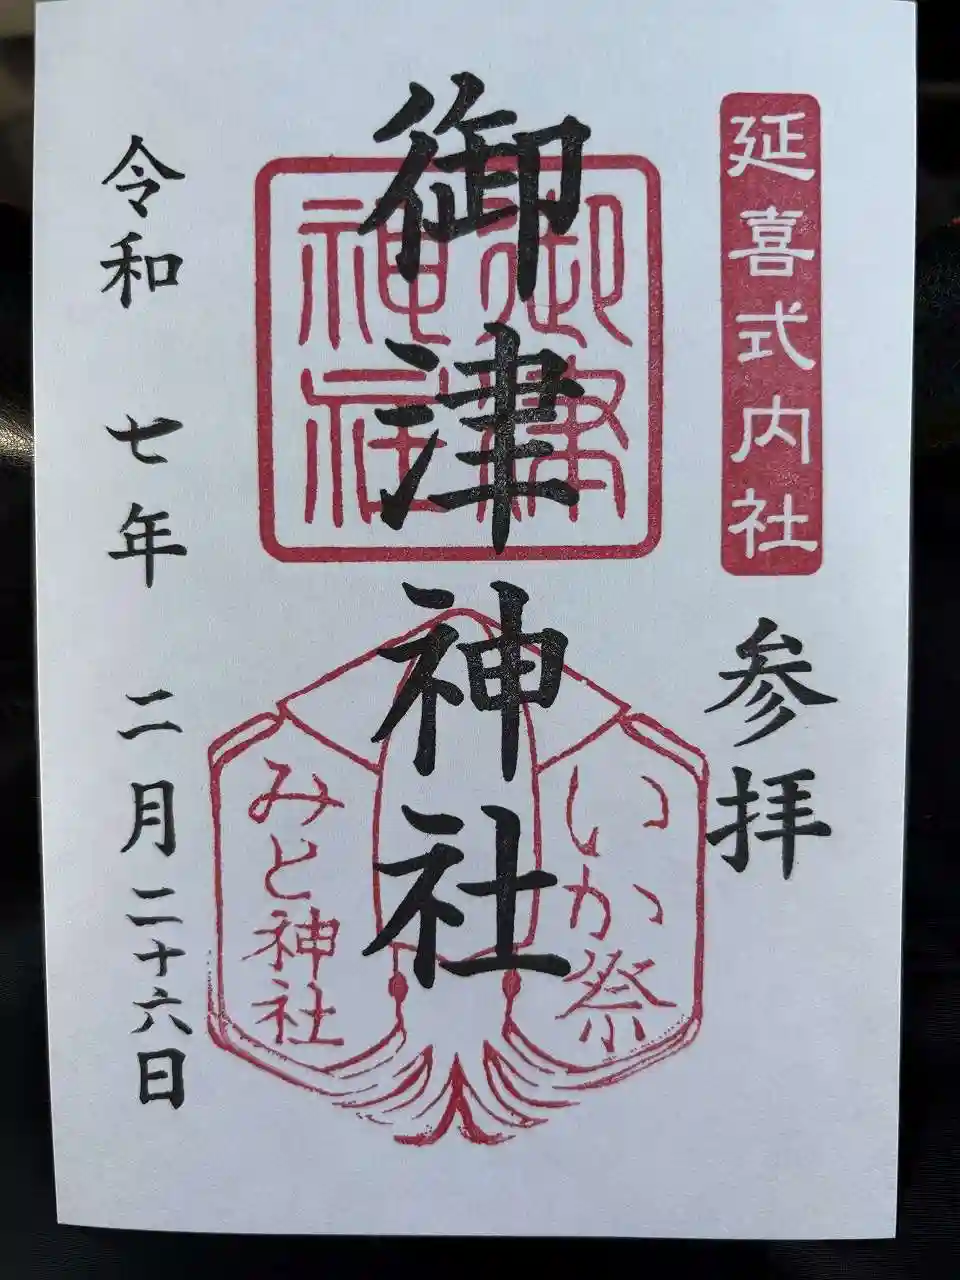 延喜式内社
参拝
御津神社
御津
神社
いか祭
みと神社
令和 七年 二月二十六日